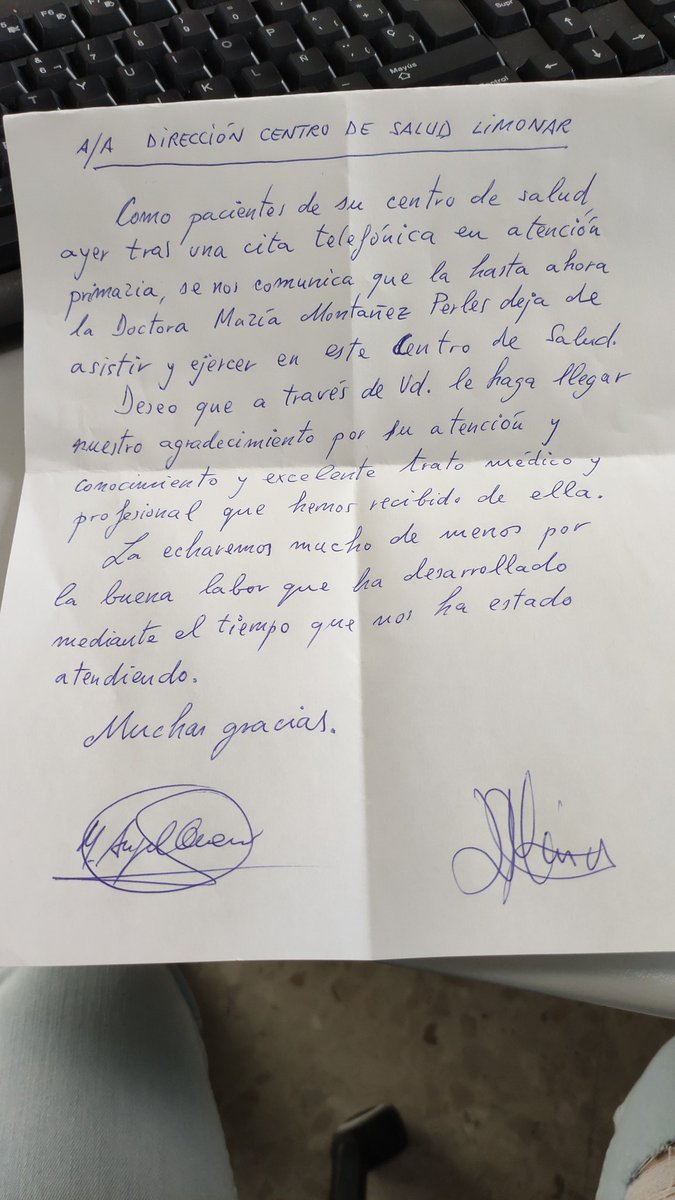 A/A DIRECCIÓN CENTRO DE SALUD LIMONAR
Como pacientes de su centro de salud,
ayer tras una cita telefónica en atención
primaria, se nos comunica que la hasta ahora
la Doctora María Montañez Perles deja de
asistir y ejercer en este Centro de Salud.
Deseo que a través de Vd. le haga llegar
nuestro agradecimiento por su atención y
conocimiento y excelente trato médico y
profesional que hemos recibido de ella.
La echaremos mucho de menos por
la buena labor que ha desarrollado
mediante el tiempo que nos ha estado
atendiendo.
Muchas gracias.